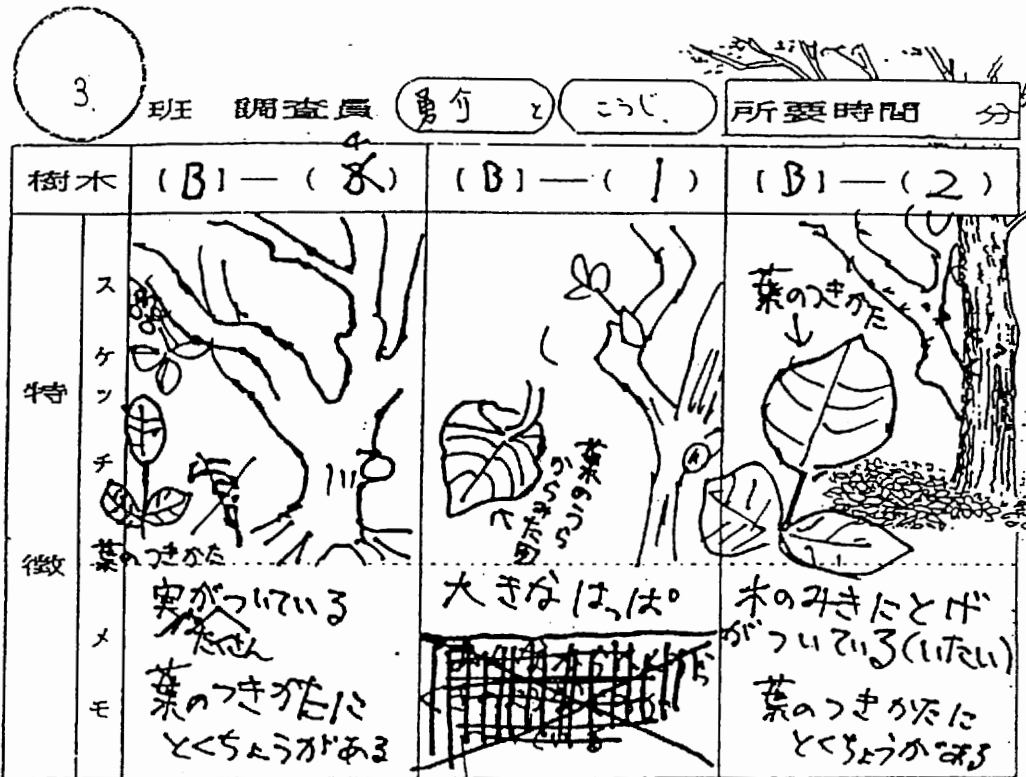 3. 班 調査員 勇介 と こうじ. 所要時間 分
樹木 (B)―( 4 ) (B)―( 1 ) (B)―( 2 )
特徴
スケッチ
葉のつきかた
葉のうら
からみた図
葉のつきかた
メモ
実がついている
たくさん
葉のつきかたに
とくちょうがある
大きなはっぱ。
木のみきにとげ
がついている(いたい)
葉のつきかたに
とくちょうがある